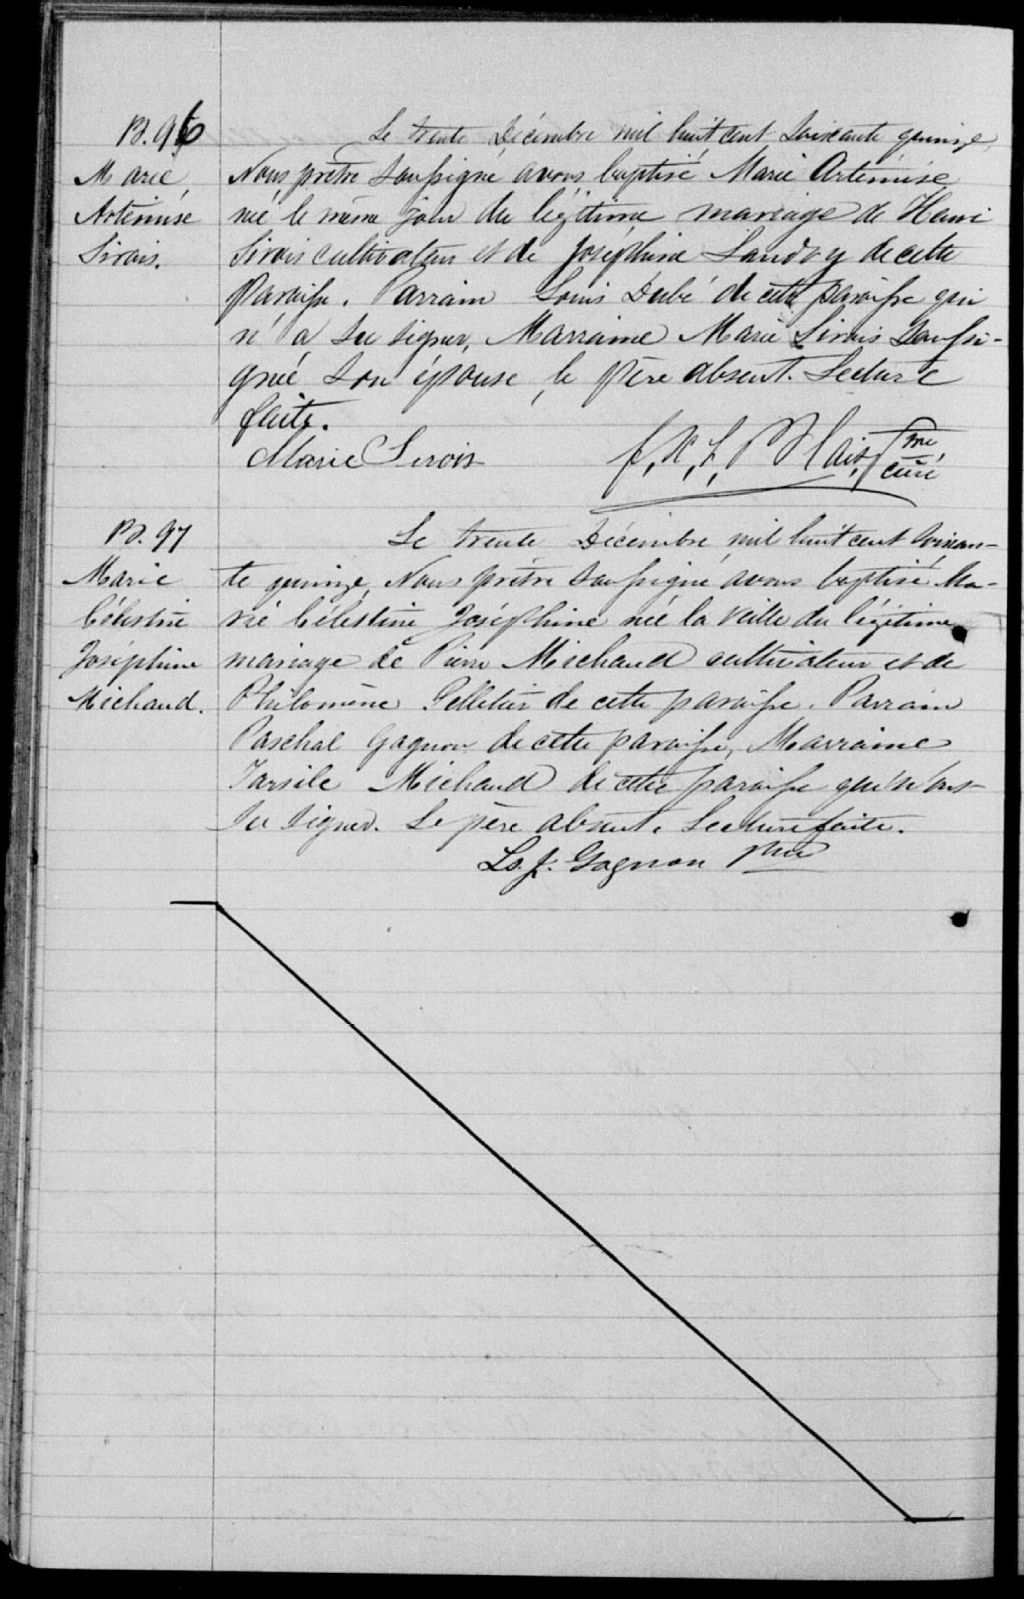 B. 96
Marie
Artémise
Sirois.
Le trente Décembre mil huit cent soixante quinze,
Nous prêtre soussigné avons baptisé Marie Artémise
née le même jour du légitime mariage de Henri
Sirois cultivateur et de Joséphine Landry de cette
paroisse. Parrain Louis Dubé de cette paroisse qui
n'a su signer, Marraine Marie Sirois soussi-
gnée son épouse, le père absent. Lecture
faite.
Marie Sirois
Blais, Ptre curé
B. 97
Marie
Célestine
Joséphine
Michaud.
Le trente Décembre mil huit cent soixan-
te quinze, Nous prêtre soussigné avons baptisé Ma-
rie Célestine Joséphine née la veille du légitime
mariage de Pierre Michaud cultivateur et de
Philomène Pelletier de cette paroisse. Parrain
Paschal Gagnon de cette paroisse, Marraine
Tarsile Michaud de cette paroisse qui n'ont
su signer. Le père absent. Lecture faite.
Ls. J. Gagnon Ptre